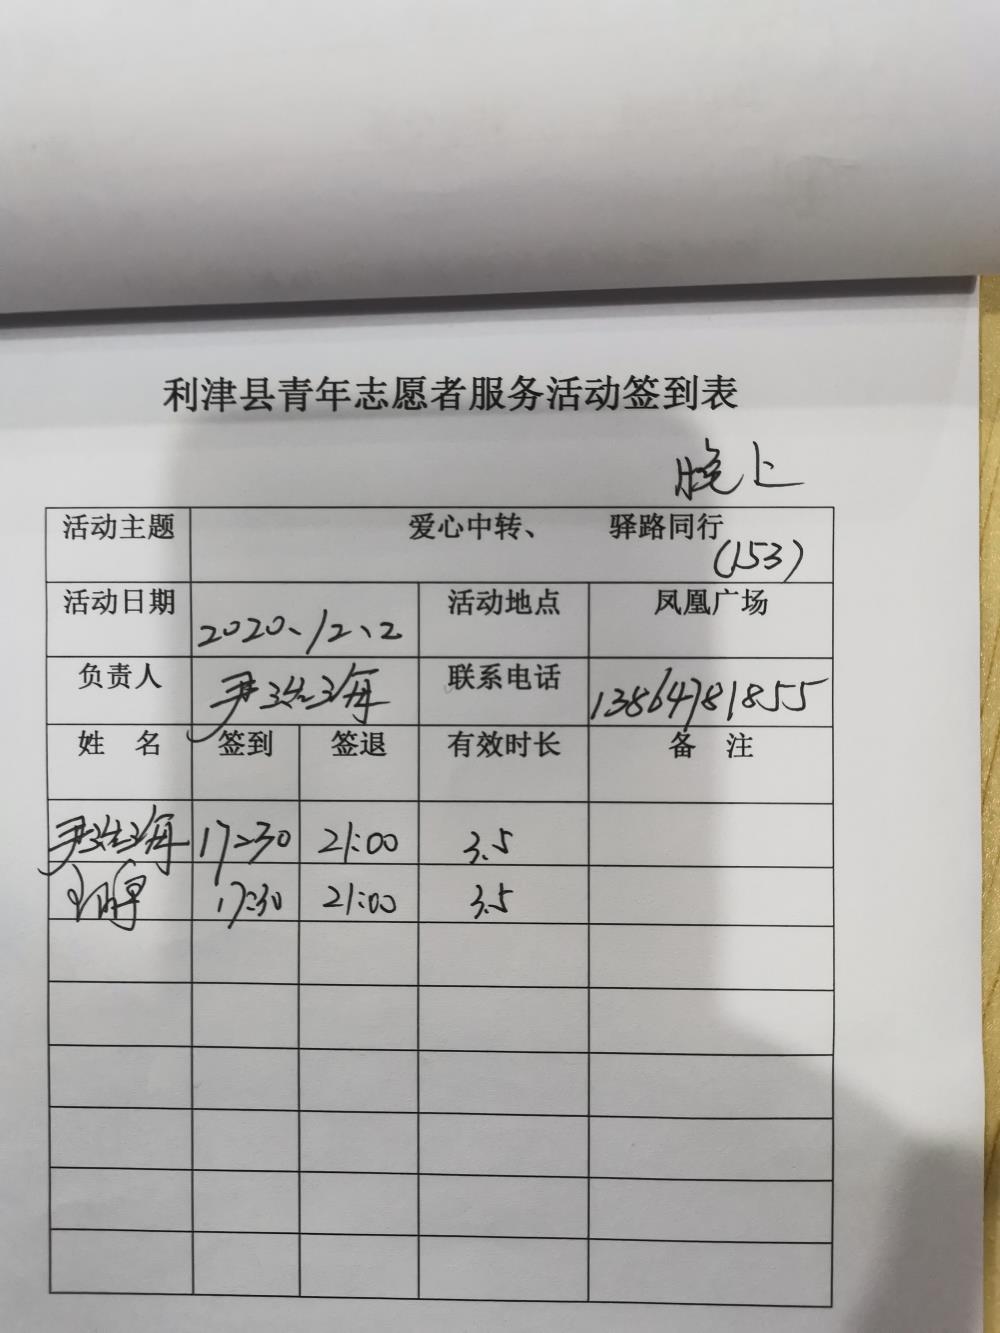 利津县青年志愿者服务活动签到表
晚上
活动主题 爱心中转、 驿路同行
(153)
活动日期 2020、12、2 活动地点 凤凰广场
负责人 尹 海 联系电话 13864781855
姓 名 签到 签退 有效时长 备 注
尹 海 17:30 21:00 3.5
17:30 21:00 3.5